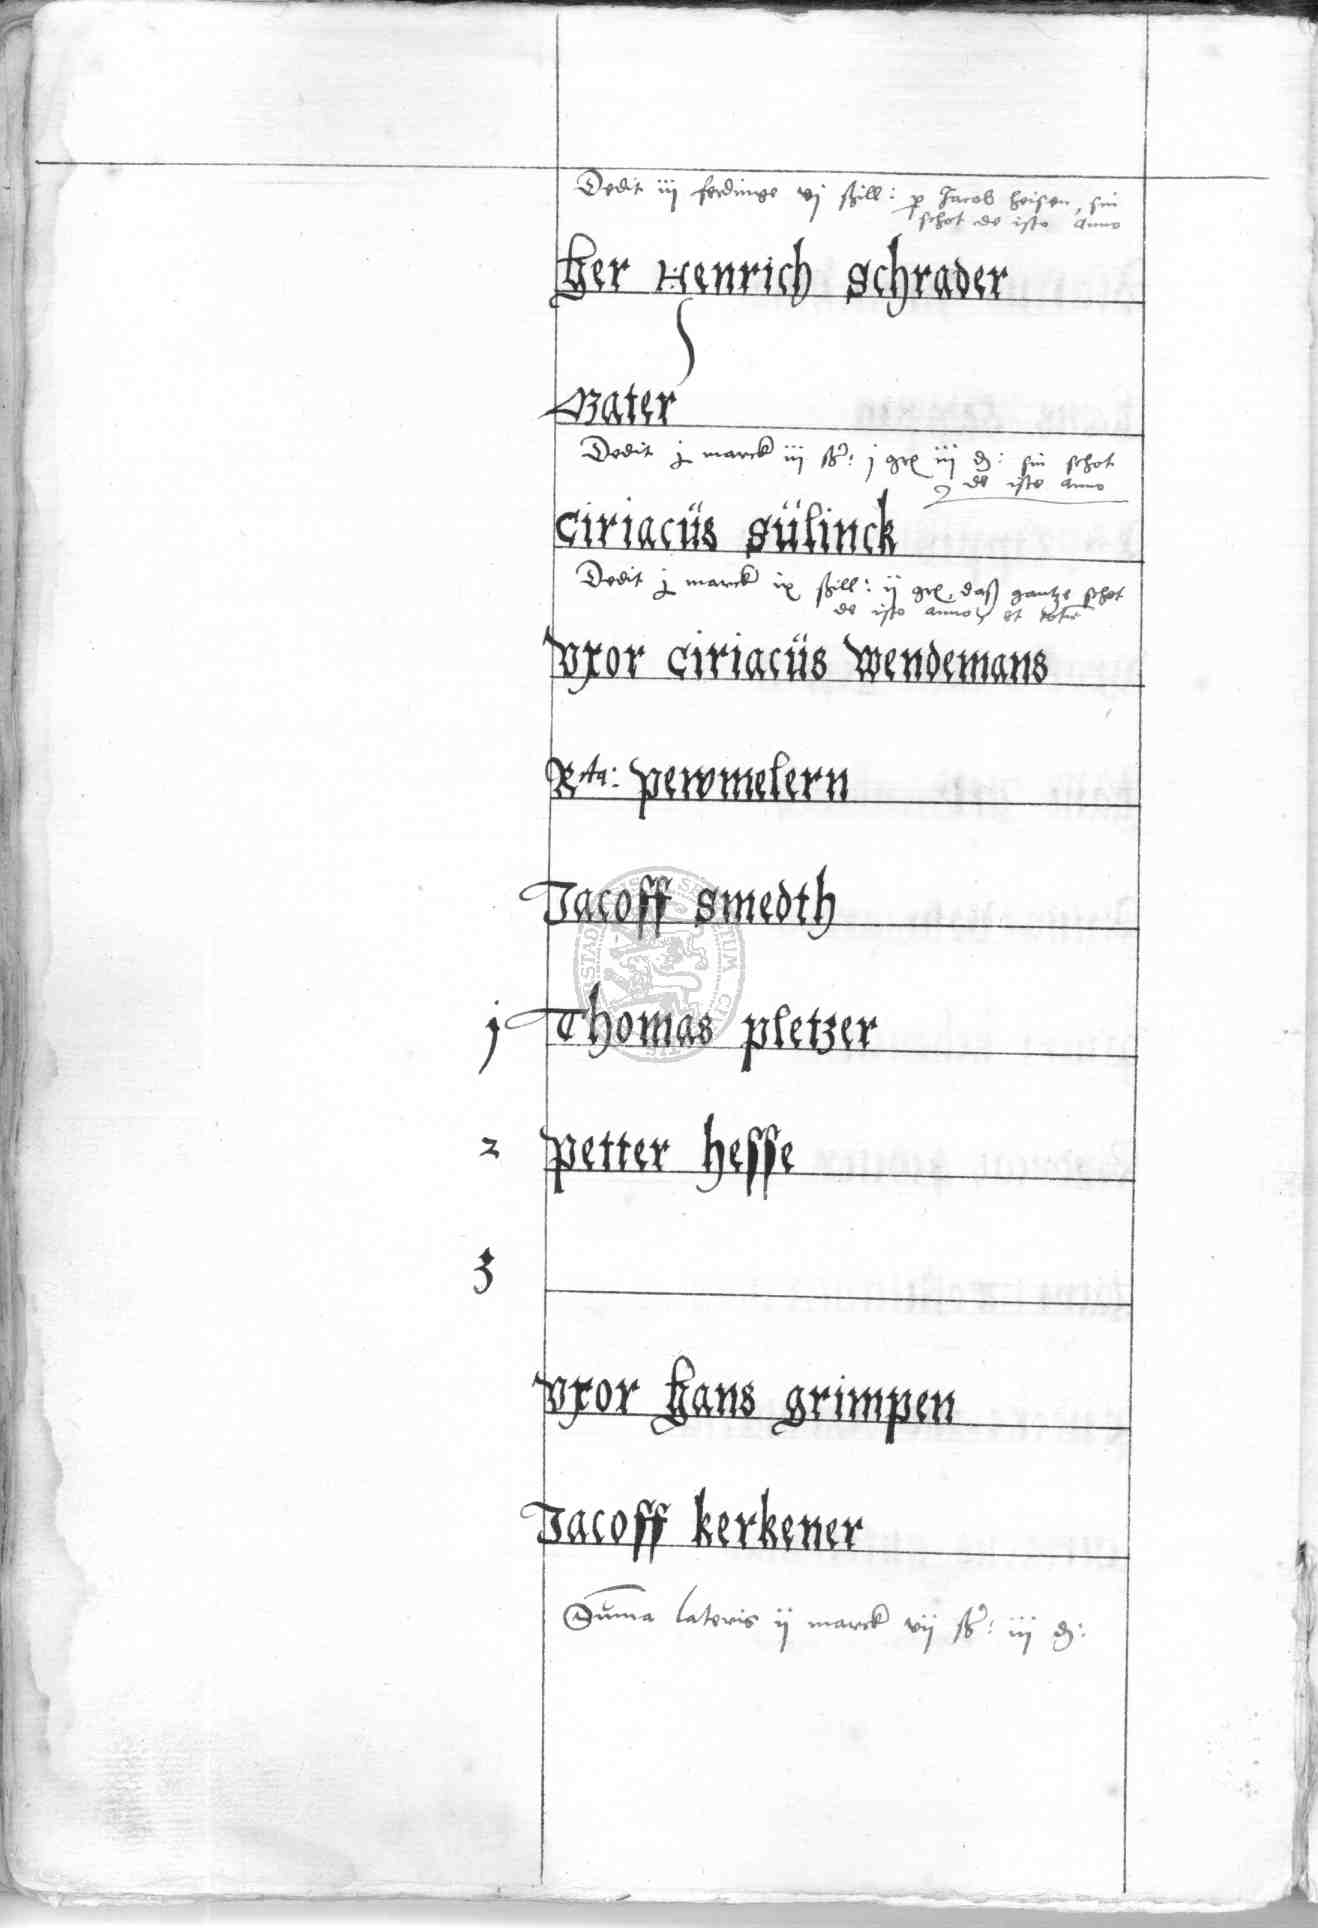 Dedit iij ferdinge vj ßill: p Jacob heisen, sin
schot de isto anno
Her Henrich Schrader
Vater
Dedit j marck iij ß: j gr iiij d: sin schot
de isto anno
Ciriacüs Sülinck
Dedit j marck ix ßill: ij gr, daß gantze schot
de isto anno, et
Vxor Ciriacüs Wendemans
Rta: pewmelern
Jacoff Smedth
j Thomas pletzer
2 petter hesse
3
Vxor Hans grimpen
Jacoff kerkener
Suma lateris ij marck vij ß: iij d: